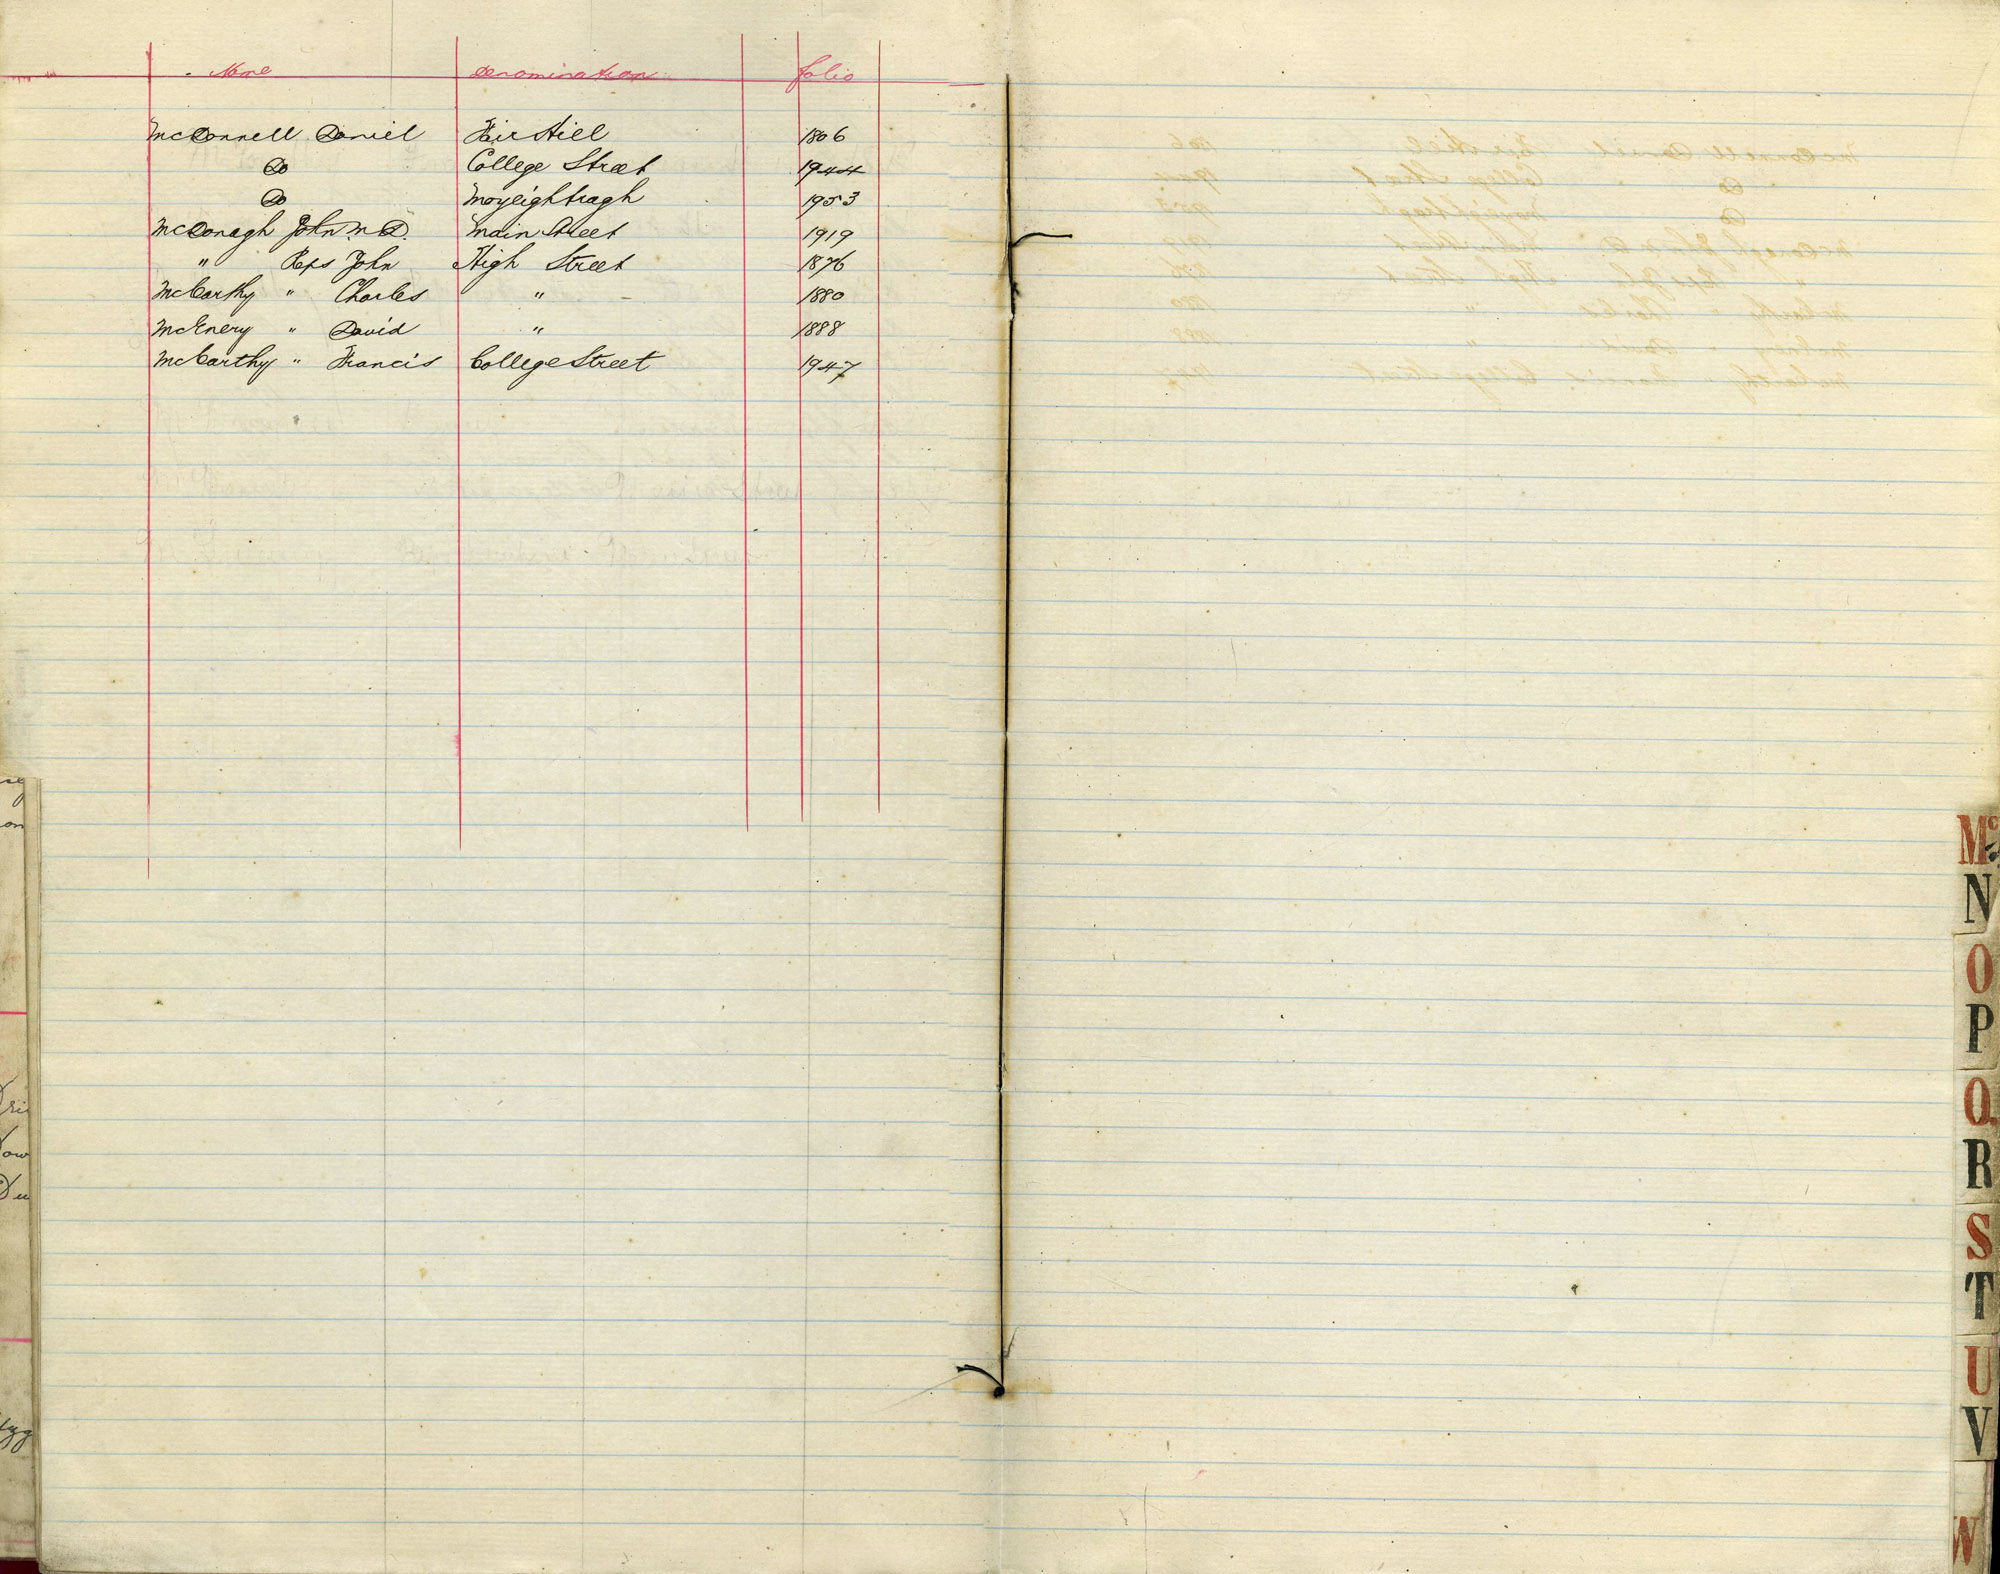 Name Denomination folio
McDonnell Daniel Fair Hill 1806
Do College Street 1944
Do Moyeightragh 1953
McDonagh John M.D. Main Street 1919
" Reps John High Street 1876
McCarthy " Charles " 1880
McEnery " David " 1888
McCarthy " Francis College Street 1947
Mc
N
O
P
Q
R
S
T
U
V
W